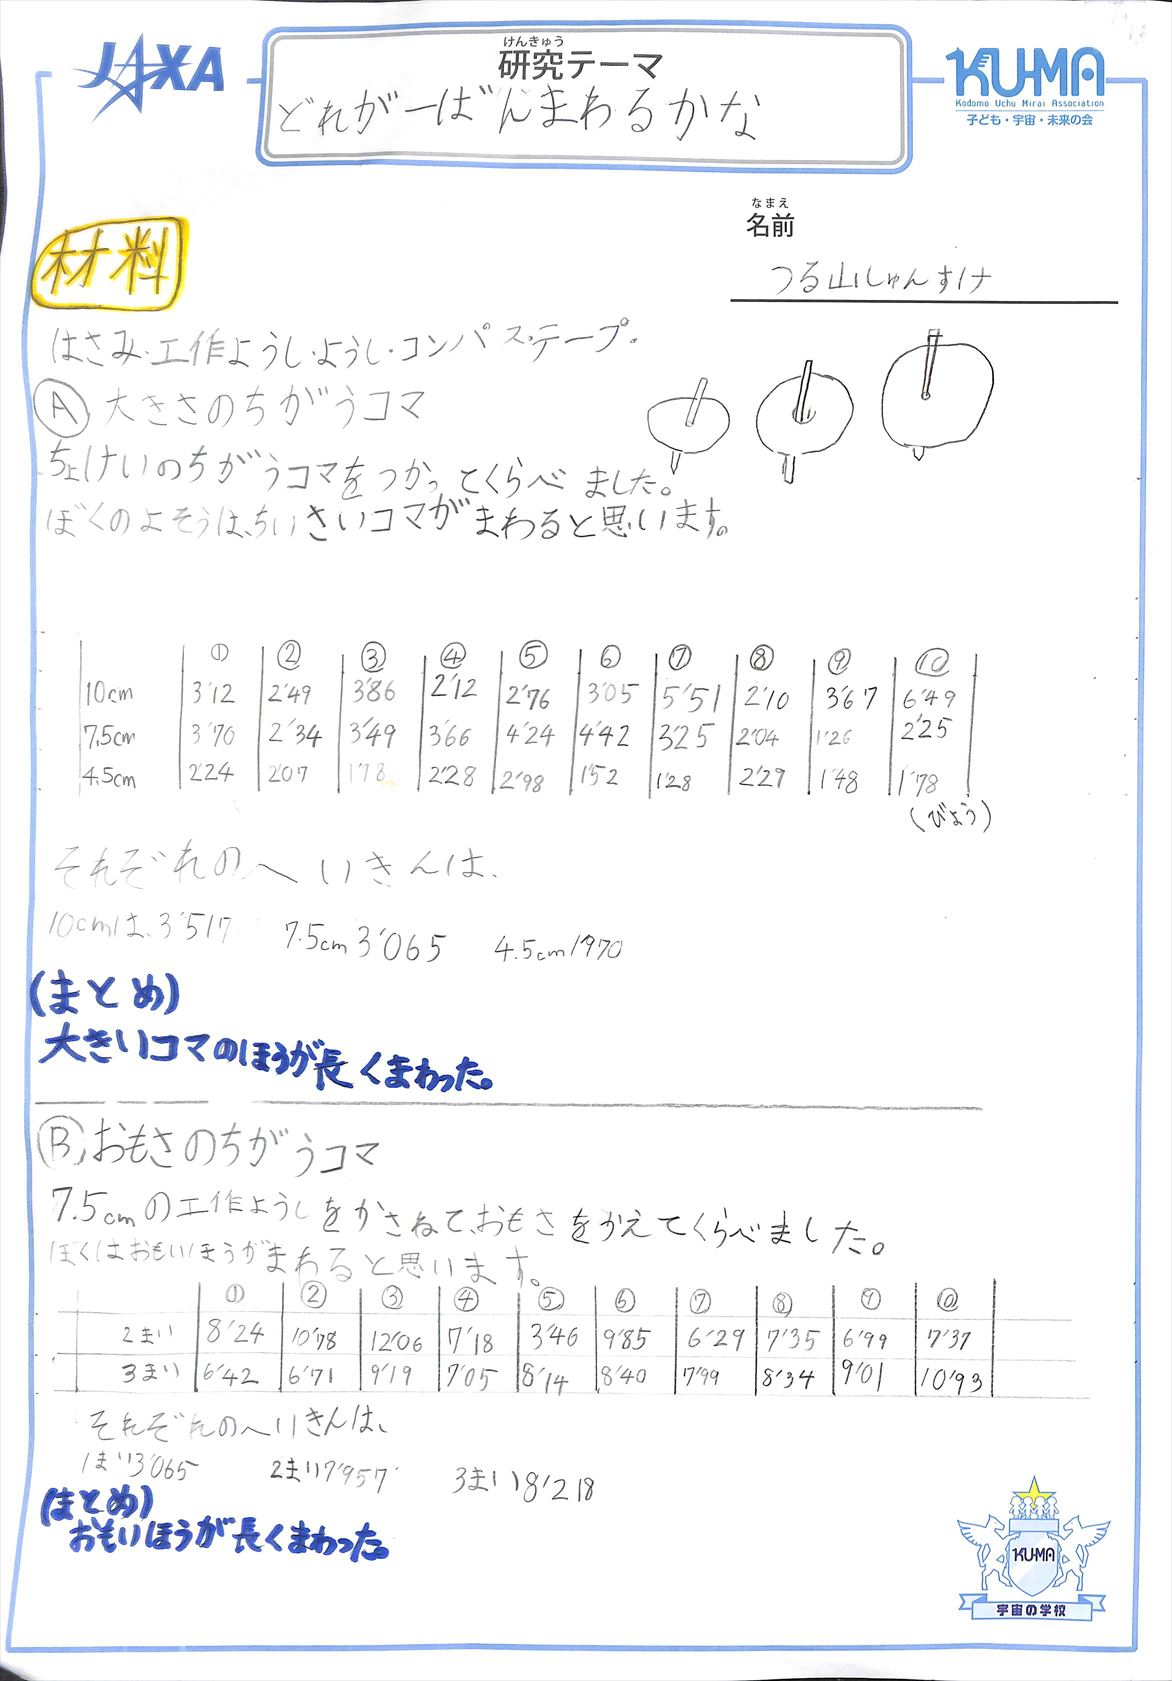 JAXA
けんきゅう
研究テーマ
どれが一ばんまわるかな
KU-MA
Kodomo Uchu Mirai Association
子ども・宇宙・未来の会
なまえ
名前
つる山しゅんすけ
材料
はさみ・工作ようし・ようし・コンパス・テープ.
Ⓐ 大きさのちがうコマ
ちょけいのちがうコマをつかってくらべました。
ぼくのよそうは、ちいさいコマがまわると思います。
① ② ③ ④ ⑤ ⑥ ⑦ ⑧ ⑨ ⑩
10cm 3'12 2'49 3'86 2'12 2'76 3'05 5'51 2'10 3'67 6'49
7.5cm 3'70 2'34 3'49 3'66 4'24 4'42 3'25 2'04 1'26 2'25
4.5cm 2'24 2'07 1'78 2'28 2'98 1'52 1'28 2'29 1'48 1'78
(びょう)
それぞれのへいきんは、
10cmは、3'517 7.5cm 3'065 4.5cm 1'970
(まとめ)
大きいコマのほうが長くまわった。
Ⓑ おもさのちがうコマ
7.5cmの工作ようしをかさねて、おもさをかえてくらべました。
ぼくはおもいほうがまわると思います。
① ② ③ ④ ⑤ ⑥ ⑦ ⑧ ⑨ ⑩
2まい 8'24 10'78 12'06 7'18 3'46 9'85 6'29 7'35 6'99 7'37
3まい 6'42 6'71 9'19 7'05 8'14 8'40 7'99 8'34 9'01 10'93
それぞれのへいきんは、
1まい3'065 2まい7'957 3まい8'218
(まとめ)
おもいほうが長くまわった。
KU-MA
宇宙の学校